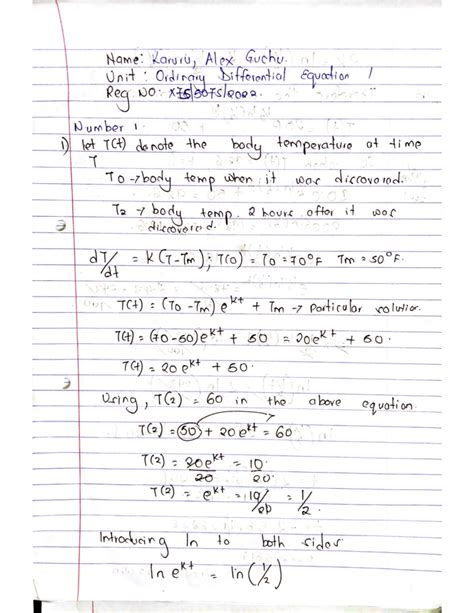 Name: Karuru, Alex Guchu.
Unit : Ordinary Differential Equation 1
Reg NO: X75/5075/2022.
Number 1.
1) let T(t) denote the body temperature at time
T
To → body temp when it was discovered.
T2 → body temp. 2 hours after it was
discovered.
dT/dt = K(T-Tm); T(0) = To = 70°F Tm = 50°F.
T(t) = (To - Tm) e^kt + Tm → Particular solution.
T(t) = (70-50)e^kt + 50 = 20e^kt + 50.
T(t) = 20e^kt + 50.
Using, T(2) = 60 in the above equation.
T(2) = 50 + 20e^kt = 60
T(2) = 20e^kt/20 = 10/20.
T(2) = e^kt = 10/20 = 1/2.
Introducing ln to both sides
ln e^kt = ln(1/2)